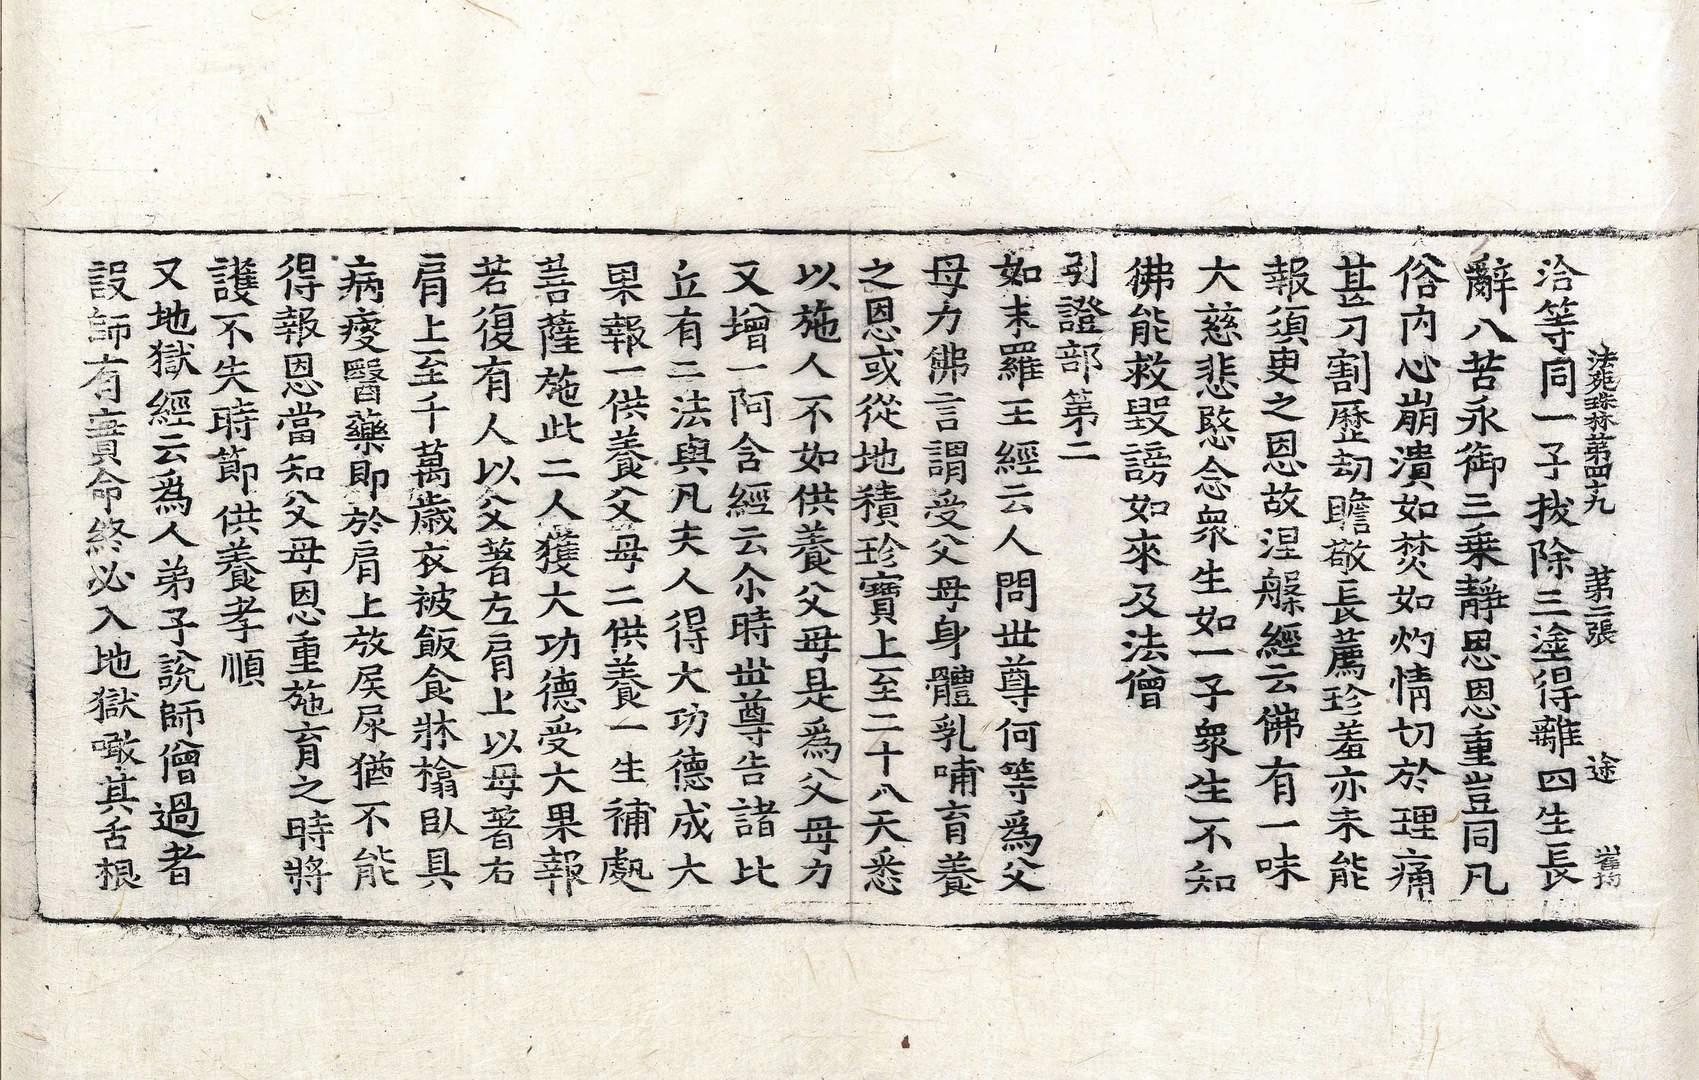 法苑珠林第四十九 第二張 途
洽等同一子拔除三塗得離四生長
辭八苦永御三乗靜恩恩重豈同凡
俗内心崩潰如焚如灼情切於理痛
甚刀割歷劫瞻敬長薦珍羞亦未能
報須更之恩故涅槃經云佛有一味
大慈悲愍念衆生如一子衆生不知
彿能救毀謗如來及法僧
引證部第二
如末羅王經云人問世尊何等爲父
母力佛言謂受父母身體乳哺育養
之恩或從地積珍寶上至二十八天悉
以施人不如供養父母是爲父母力
又增一阿含經云尒時世尊告諸比
丘有二法與凡夫人得大功德成大
果報一供養父母二供養一生補處
菩薩施此二人獲大功德受大果報
若復有人以父著左肩上以母著右
肩上至千萬歲衣被飯食牀榻臥具
病瘦醫藥即於肩上放屎尿猶不能
得報恩當知父母恩重施育之時將
護不失時節供養孝順
又地獄經云爲人弟子說師僧過者
設師有實命終必入地獄噉其舌根